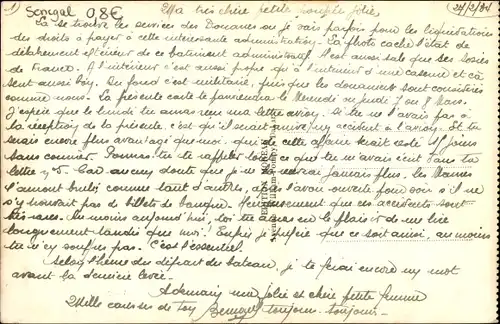 1) Senegal 08€ Ma très chère petite poupée jolie, 24/2/34
La se trouve les services des Douanes ou je vais parfois pour les liquidations
des droits à payer à cette intéressante administration. La photo cache l'état de
délabrement extérieur de ce batiment administratif. C'est aussi sale que ses sosies
de France. A l'intérieur c'est aussi propre qu'à l'intérieur d'une caserne et ça
sent aussi bon. Du fond c'est militaire, puis que les douaniers sont considérés
comme nous. La présente carte te parviendra le Mercredi ou Jeudi 7 ou 8 Mars.
J'espère que le lundi tu auras reçu ma lettre avion. Si tu ne l'avais pas à
la réception de la présente, c'est qu'il serait arrivé un accident à l'avion. Et tu
serais encore plus avantagé que moi, que de cette affaire serait resté 11 jours
sans courrier. Pourras-tu te rappeler tout ce que tu m'avais écrit dans ta
lettre 25. Car aucun doute que je ne la verrai jamais plus. Les Maures
l'auront brûlé comme tant d'autres, après l'avoir ouverte pour voir s'il ne
s'y trouvait pas de billets de banque. Heureusement que ces accidents sont
très rares. Au moins aujourd'hui, toi tu auras eu le plaisir de me lire
longuement tandis que moi! Enfin je préfère que ce soit ainsi, au moins
tu n'y souffres pas. C'est l'essentiel.
Selon l'heure du départ du bateau, je te ferai encore un mot
avant la dernière levée.
A demain ma jolie et chère petite femme
Mille caresses de ton toujours toujours